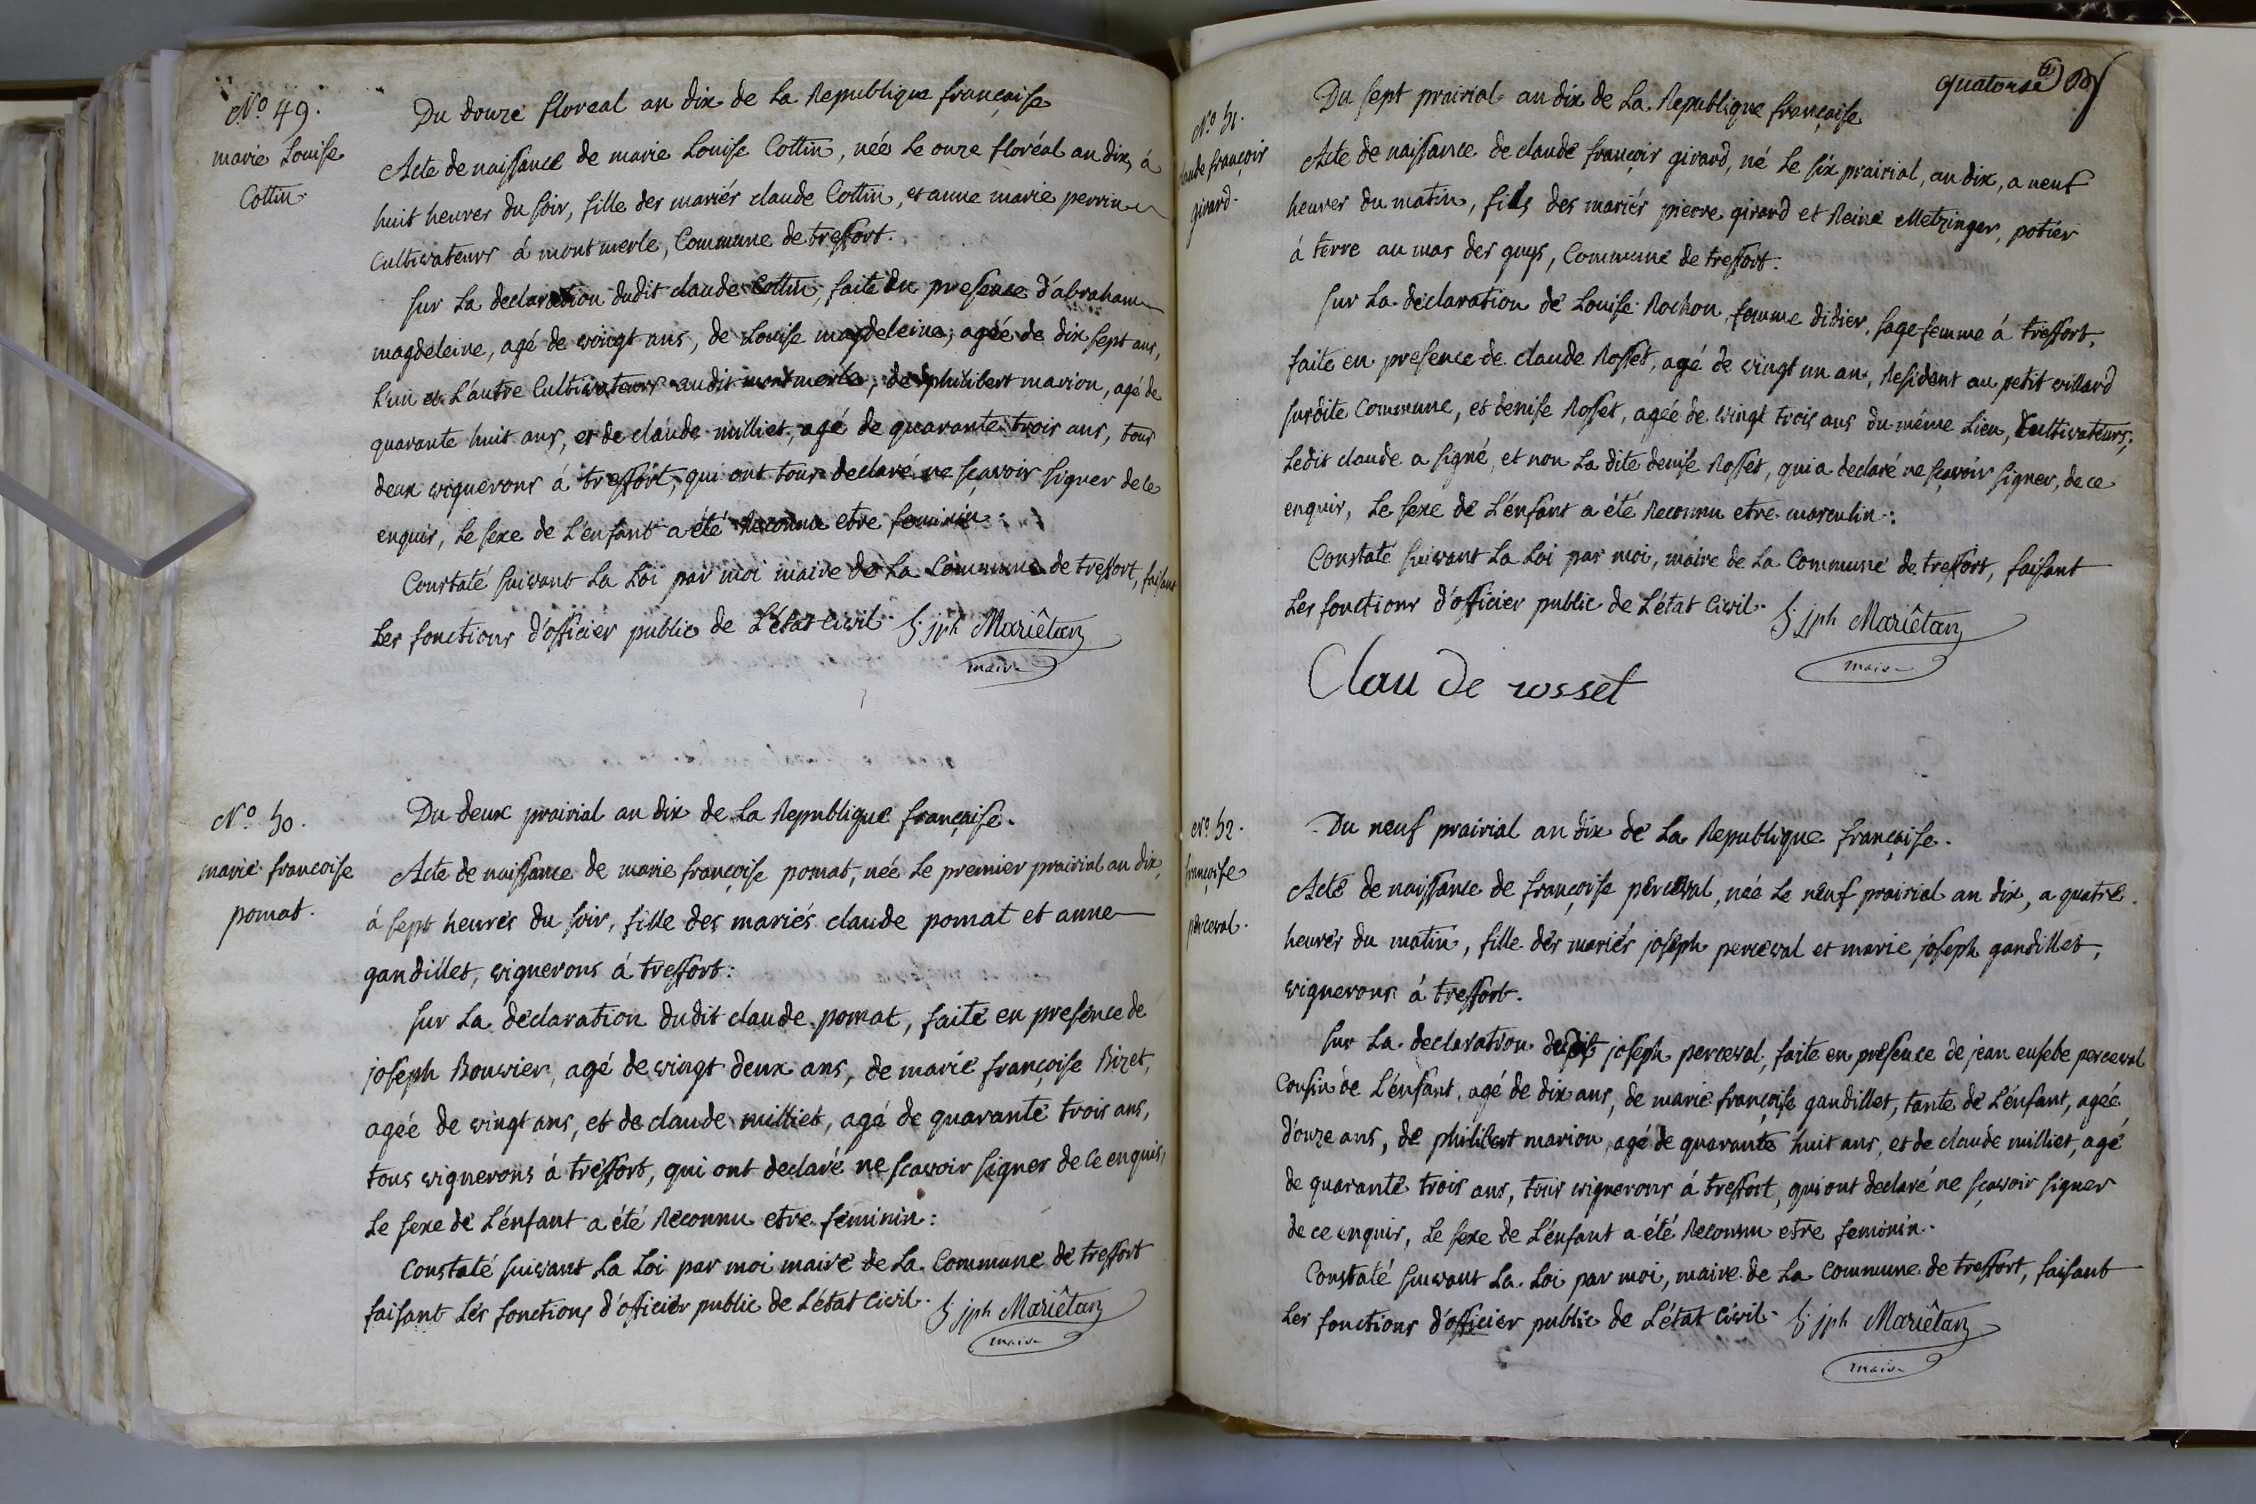 N.o 49.
marie Louise
Cottin.
Du douze floreal an dix de La Republique françoise
Acte de naissance de marie Louise Cottin, née Le onze floréal an dix, á
huit heures du soir, fille des mariés claude Cottin, et anne marie perrin
Cultivateurs á mont merle, Commune de treffort.
sur La declaration dudit claude Cottin, faite en presence d'abraham
magdeleine, agé de vingt ans, de Louise magdeleine, agée de dix sept ans,
L'un et L'autre Cultivateurs audit montmerle, de philibert marion, agé de
quarante huit ans, et de claude milliet, agé de quarante trois ans, tous
deux vignerons á treffort, qui ont tous declaré ne sçavoir signer de ce
enquis, Le sexe de L'enfant a été Reconnu etre feminin.
Constaté suivant La Loi par moi maire de La Commune de treffort, faisant
Les fonctions d'officier public de L'état Civil. jph Mariêtan
maire
N.o 50.
marie françoise
pomat.
Du deux prairial an dix de La Republique françoise.
Acte de naissance de marie françoise pomat, née Le premier prairial an dix,
á sept heures du soir, fille des mariés claude pomat et anne
gandillet, vignerons á treffort:
sur La declaration dudit claude pomat, faite en presence de
joseph Bouvier, agé de vingt deux ans, de marie françoise Bizet,
agée de vingt ans, et de claude milliet, agé de quarante trois ans,
tous vignerons á treffort, qui ont declaré ne scavoir signer de ce enquis,
Le sexe de L'enfant a été Reconnu etre feminin:
Constaté suivant La Loi par moi maire de La Commune de treffort
faisant Les fonctions d'officier public de L'état Civil. jph Mariêtan
maire
quatorze
N.o 51.
claude françois
girard.
Du sept prairial an dix de La Republique françoise
Acte de naissance de claude françois girard, né Le six prairial, an dix, a neuf
heures du matin, fils des mariés pierre girard et Reine Metzinger, potier
á terre au mas des guys, Commune de treffort.
sur La declaration de Louise Rochon, femme didier, sage femme á treffort,
faite en presence de claude Rosset, agé de vingt un an, Resident au petit villard
susdite Commune, et denise Rosset, agée de vingt trois ans du même Lieu, Cultivateurs;
Ledit claude a signé, et non La dite denise Rosset, qui a declaré ne sçavoir signer, de ce
enquis, Le sexe de L'enfant a été Reconnu etre masculin:
Constaté suivant La Loi par moi, maire de La Commune de treffort, faisant
Les fonctions d'officier public de L'état Civil. jph Mariêtan
maire
Claude rosset
N.o 52.
françoise
perceval.
Du neuf prairial an dix de La Republique françoise.
Acte de naissance de françoise perceval, née Le neuf prairial an dix, a quatre
heures du matin, fille des mariés joseph perceval et marie joseph gandillet,
vignerons á treffort.
sur La declaration dudit joseph perceval, faite en presence de jean eusebe perceval
Cousin de L'enfant, agé de dix ans, de marie françoise gandillet, tante de L'enfant, agée
d'onze ans, de philibert marion, agé de quarante huit ans, et de claude milliet, agé
de quarante trois ans, tous vignerons á treffort, qui ont declaré ne sçavoir signer
de ce enquis, Le sexe de L'enfant a été Reconnu etre feminin.
Constaté suivant La Loi par moi, maire de La Commune de treffort, faisant
Les fonctions d'officier public de L'état Civil. jph Mariêtan
maire